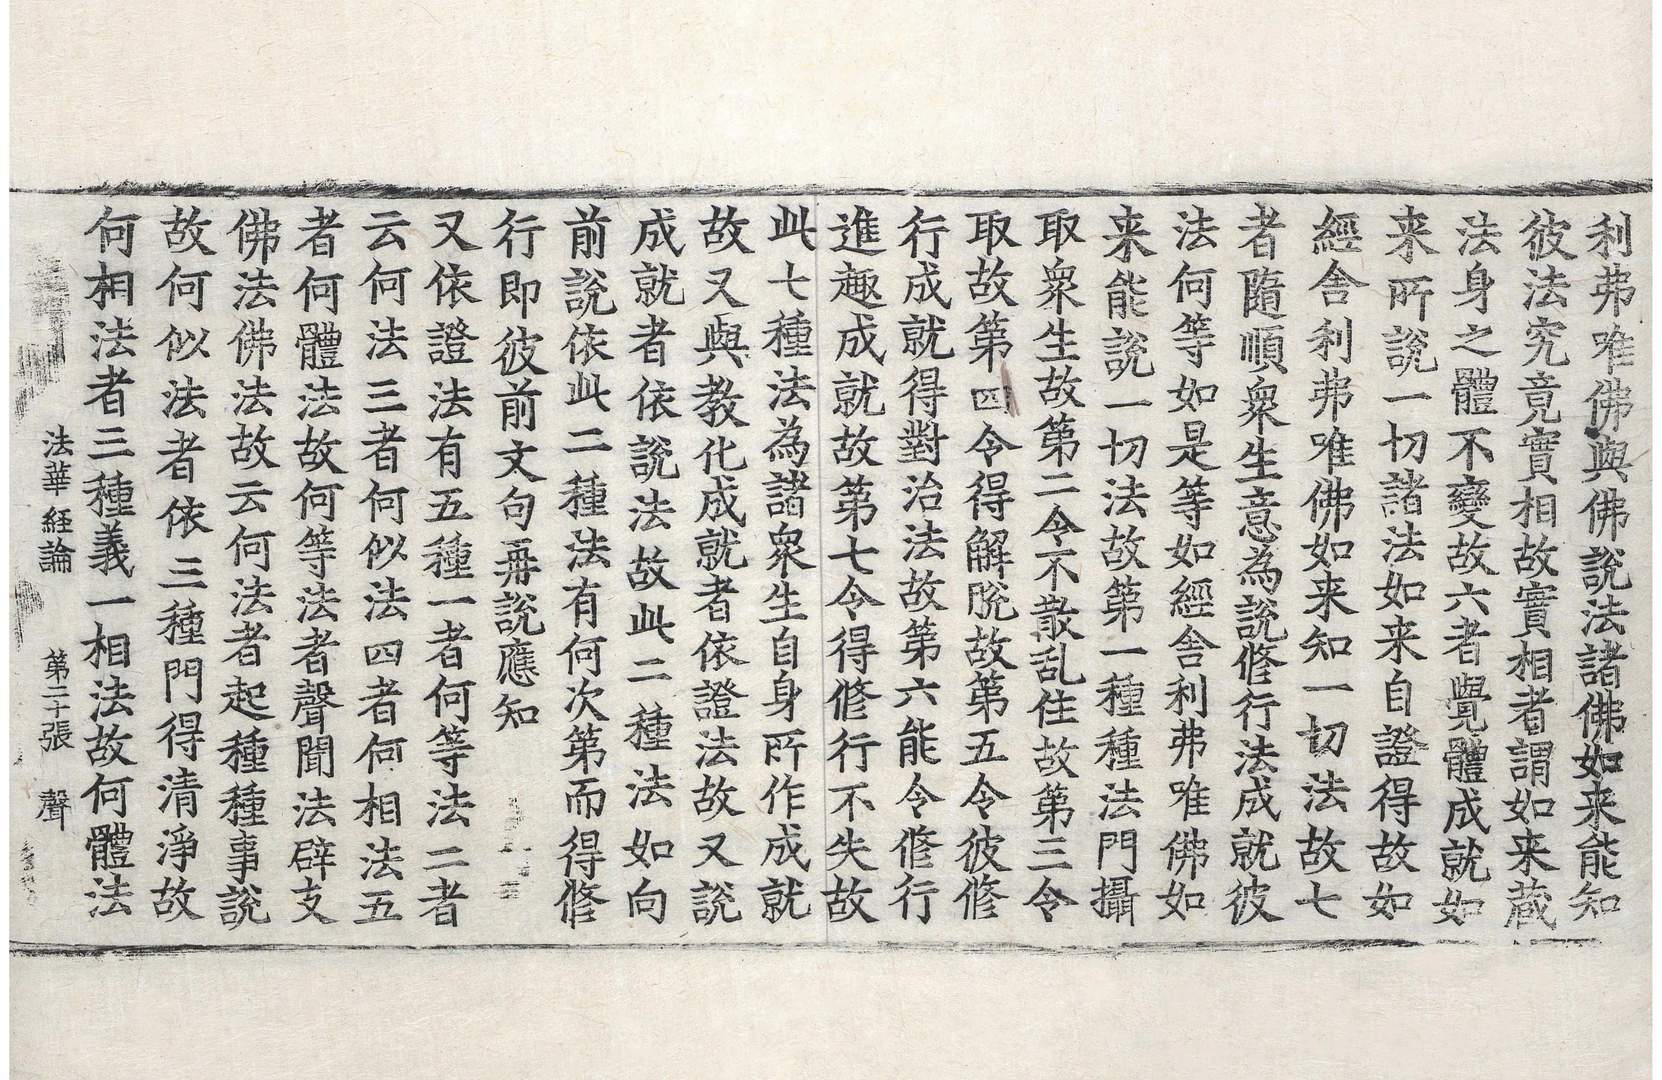 利弗唯佛與佛說法諸佛如来能知
彼法究竟實相故實相者謂如来蔵
法身之體不變故六者覺體成就如
来所說一切諸法如来自證得故如
經舍利弗唯佛如来知一切法故七
者隨順衆生意為說修行法成就彼
法何等如是等如經舍利弗唯佛如
来能說一切法故第一種種法門攝
取衆生故第二令不散乱住故第三令
取故第四令得解脫故第五令彼修
行成就得對治法故第六能令修行
進趣成就故第七令得修行不失故
此七種法為諸衆生自身所作成就
故又與教化成就者依證法故又說
成就者依說法故此二種法如向
前說依此二種法有何次第而得修
行即彼前文句再說應知
又依證法有五種一者何等法二者
云何法三者何似法四者何相法五
者何體法故何等法者聲聞法辟支
佛法佛法故云何法者起種種事說
故何似法者依三種門得清淨故
何相法者三種義一相法故何體法
法華経論 第二十張 聲